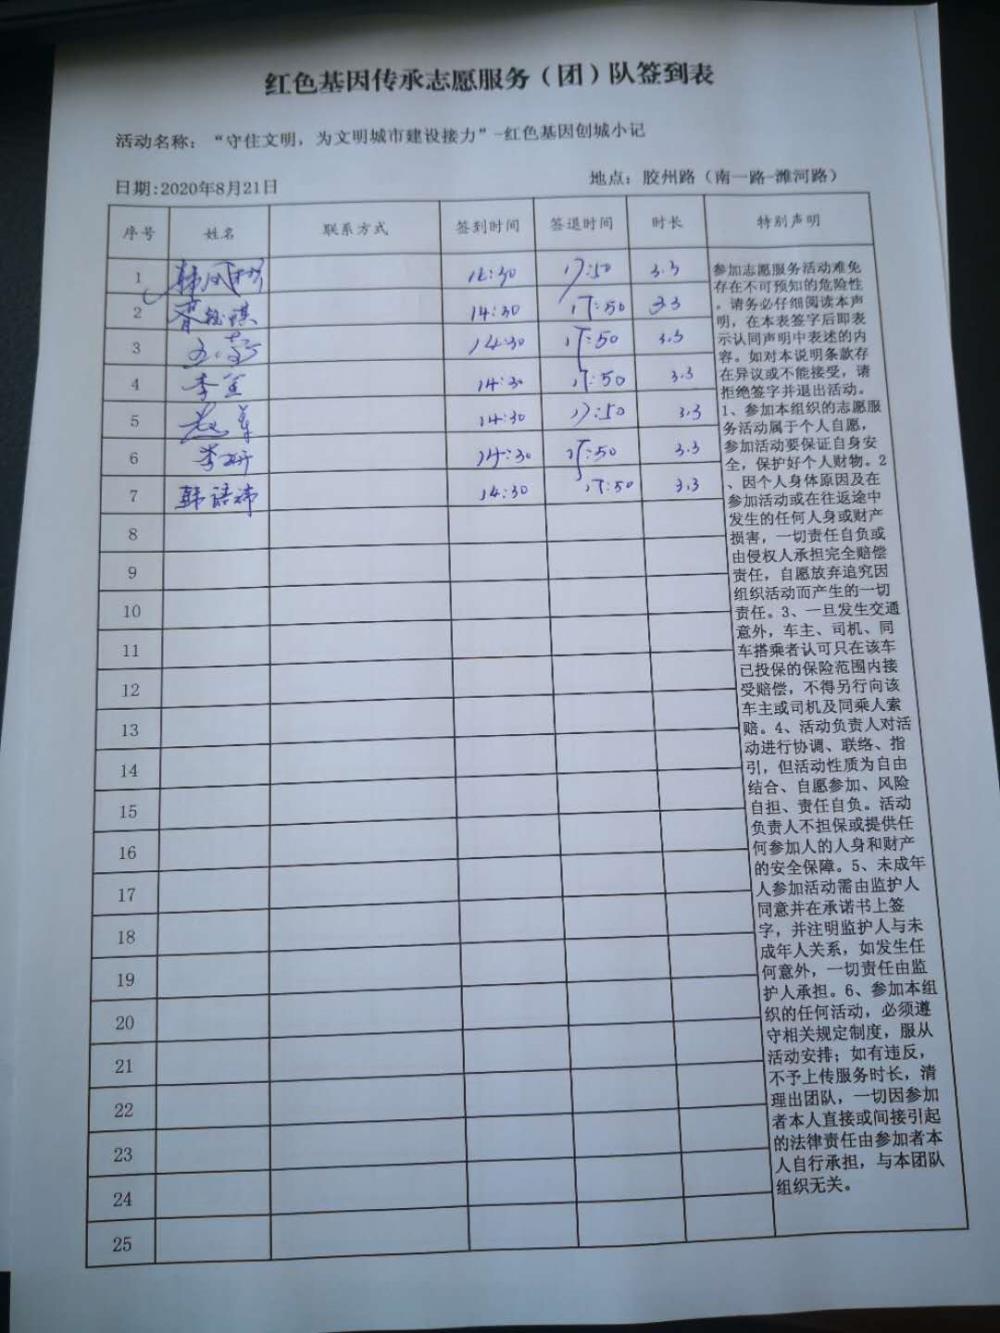 红色基因传承志愿服务（团）队签到表
活动名称：“守住文明，为文明城市建设接力”-红色基因创城小记
日期:2020年8月21日
地点：胶州路（南一路-潍河路）
序号 姓名 联系方式 签到时间 签退时间 时长 特别声明
1 17:50 3.3
2 14:30 17:50 3.3
3 14:30 17:50 3.3
4 14:30 17:50 3.3
5 14:30 17:50 3.3
6 李妍 14:30 17:50 3.3
7 韩语祎 14:30 17:50 3.3
8
9
10
11
12
13
14
15
16
17
18
19
20
21
22
23
24
25
参加志愿服务活动难免
存在不可预知的危险性
。请务必仔细阅读本声
明，在本表签字后即表
示认同声明中表述的内
容。如对本说明条款存
在异议或不能接受，请
拒绝签字并退出活动。
1、参加本组织的志愿服
务活动属于个人自愿，
参加活动要保证自身安
全，保护好个人财物。2
、因个人身体原因及在
参加活动或在往返途中
发生的任何人身或财产
损害，一切责任自负或
由侵权人承担完全赔偿
责任，自愿放弃追究因
组织活动而产生的一切
责任。3、一旦发生交通
意外，车主、司机、同
车搭乘者认可只在该车
已投保的保险范围内接
受赔偿，不得另行向该
车主或司机及同乘人索
赔。4、活动负责人对活
动进行协调、联络、指
引，但活动性质为自由
结合、自愿参加、风险
自担、责任自负。活动
负责人不担保或提供任
何参加人的人身和财产
的安全保障。5、未成年
人参加活动需由监护人
同意并在承诺书上签
字，并注明监护人与未
成年人关系，如发生任
何意外，一切责任由监
护人承担。6、参加本组
织的任何活动，必须遵
守相关规定制度，服从
活动安排；如有违反，
不予上传服务时长，清
理出团队，一切因参加
者本人直接或间接引起
的法律责任由参加者本
人自行承担，与本团队
组织无关。